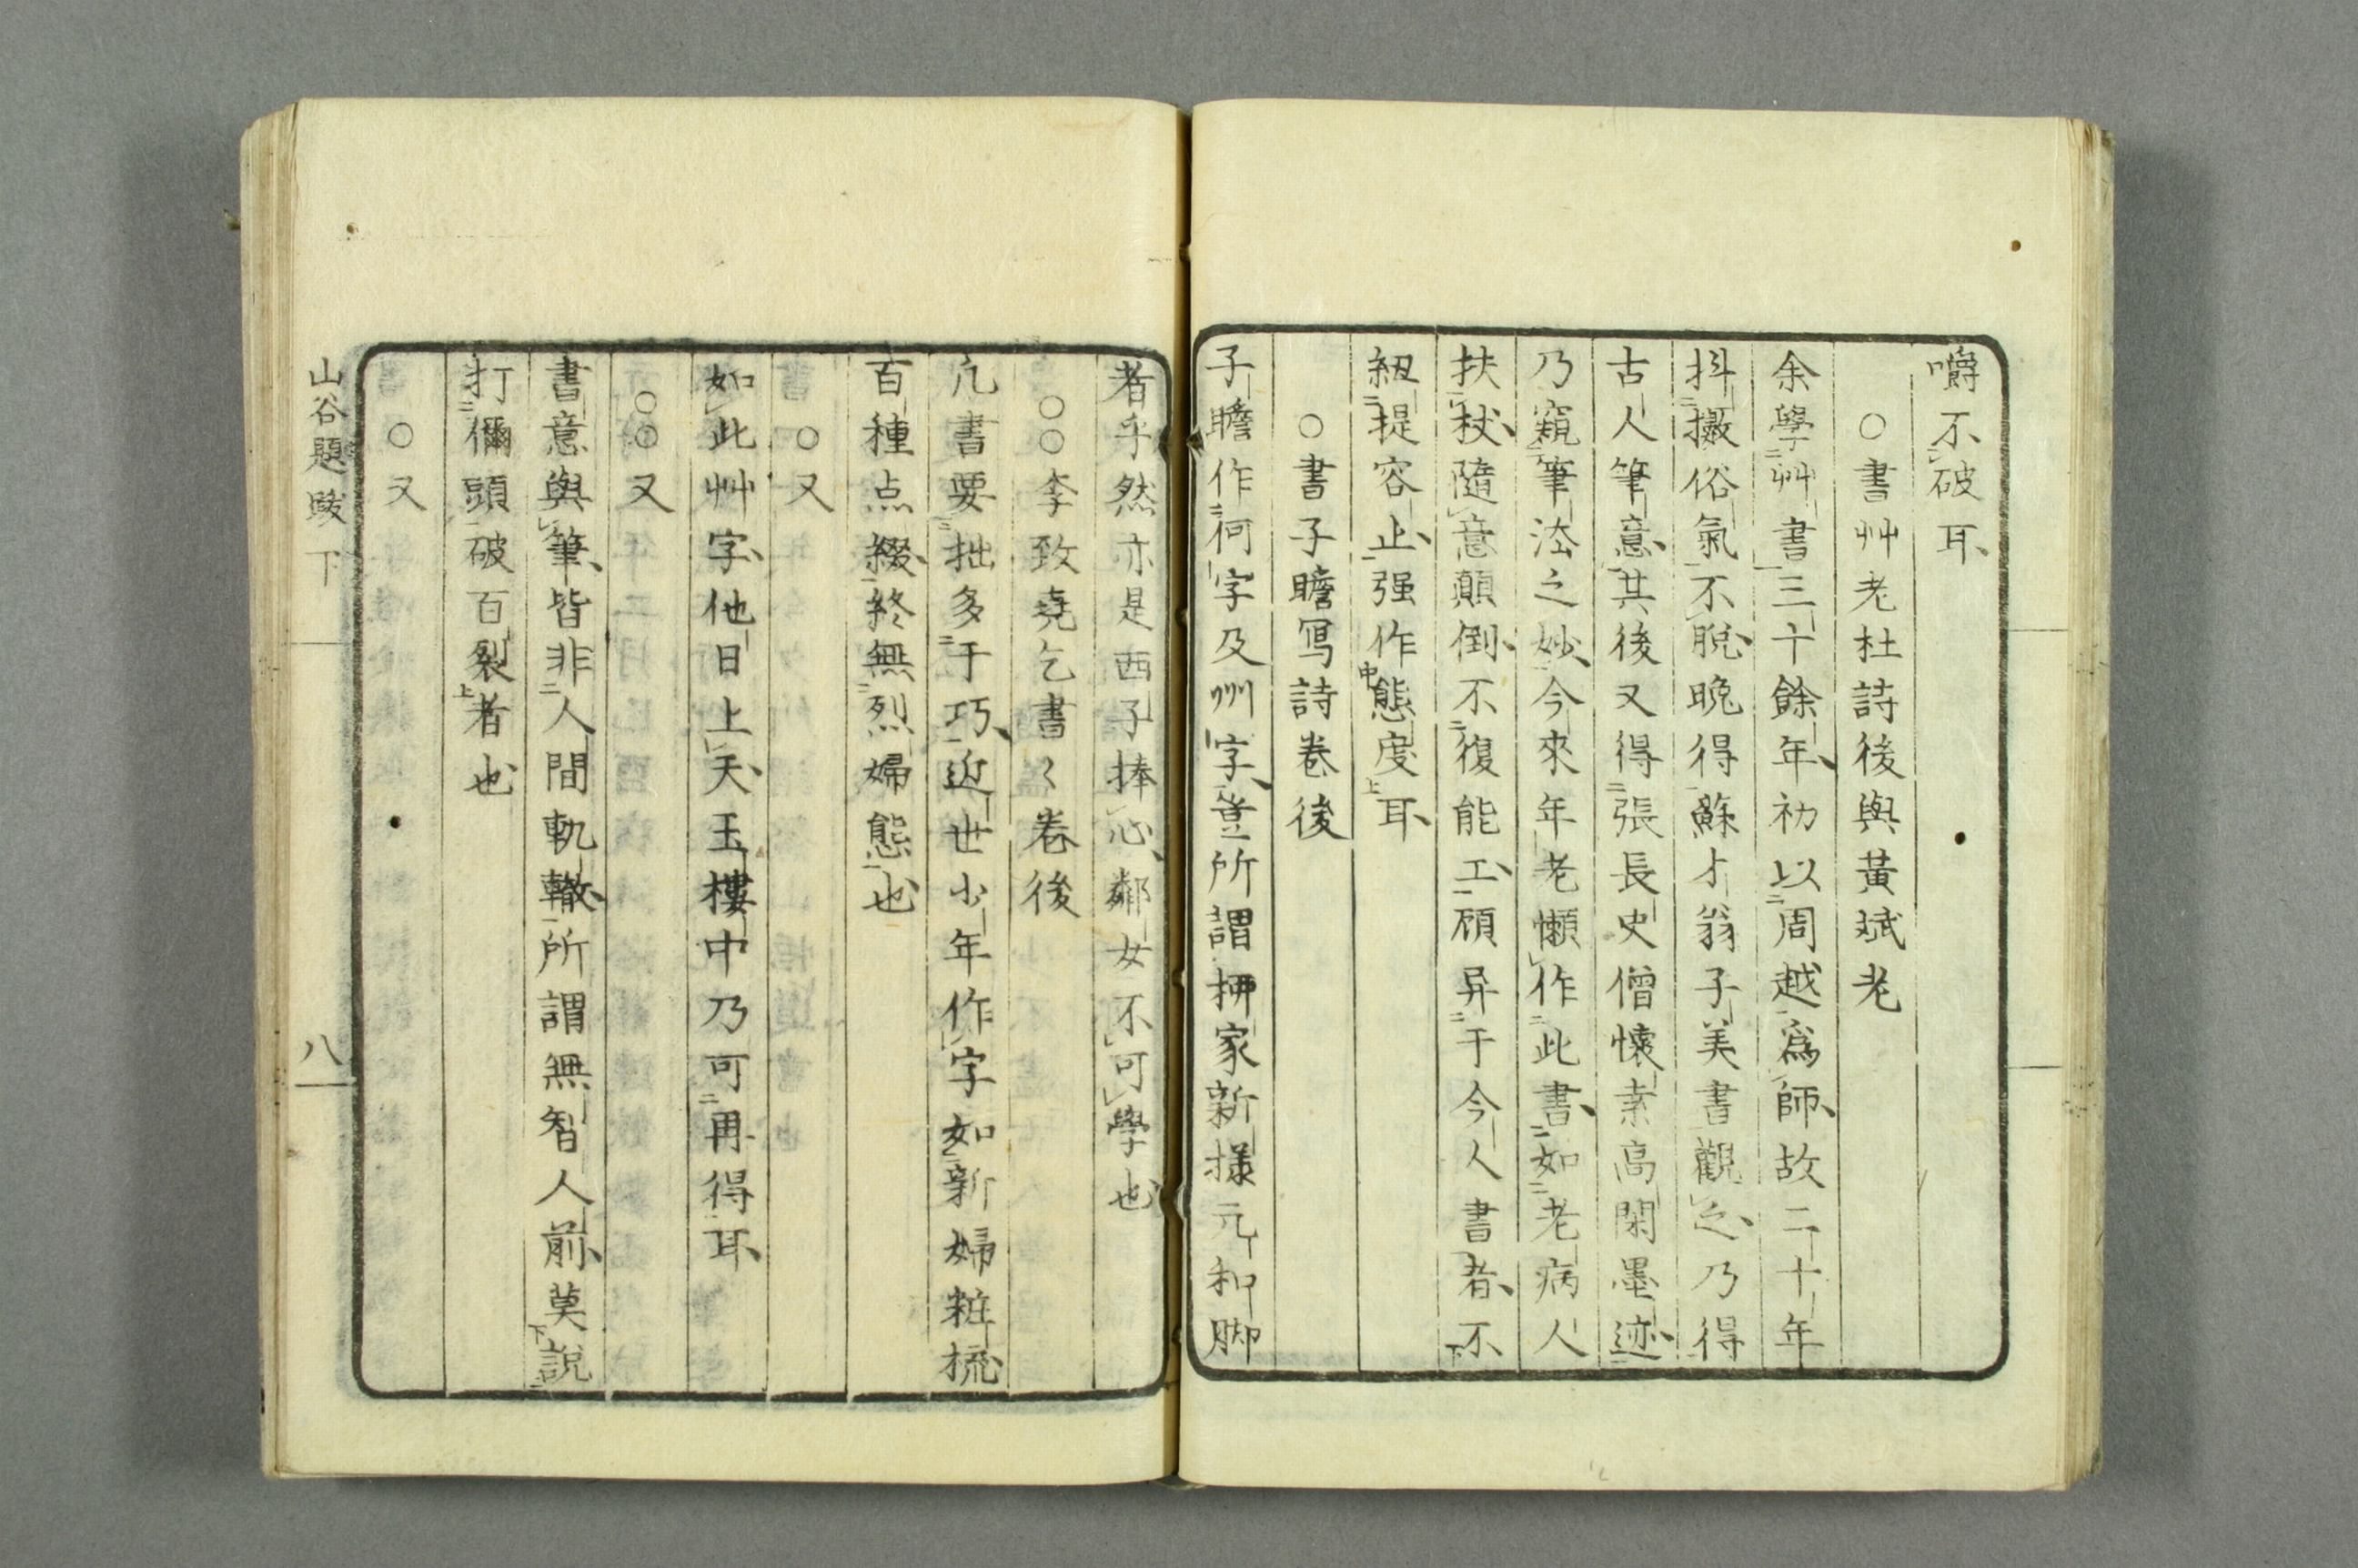 嚼不破耳
○書艸老杜詩後與黃斌老
余學艸書三十餘年初以周越爲師故二十年
抖擻俗氣不脫晚得蘇才翁子美書觀之乃得
古人筆意其後又得張長史僧懷素高閑墨迹
乃窺筆法之妙今來年老懶作此書如老病人
扶杖隨意顛倒不復能工顧异于今人書者不
紐提容止强作態度耳
○書子瞻寫詩卷後
子瞻作柯字及州字豈所謂柳家新様元和脚
者乎然亦是西子捧心鄰女不可學也
○○李致堯乞書〻卷後
凢書要拙多于巧近世少年作字如新婦粧梳
百種点綴終無烈婦態也
○又
如此艸字他日上天玉樓中乃可再得耳
○○又
書意與筆皆非人間軌轍所謂無智人前莫說
打儞頭破百裂者也
○又
山谷題跋 下
八